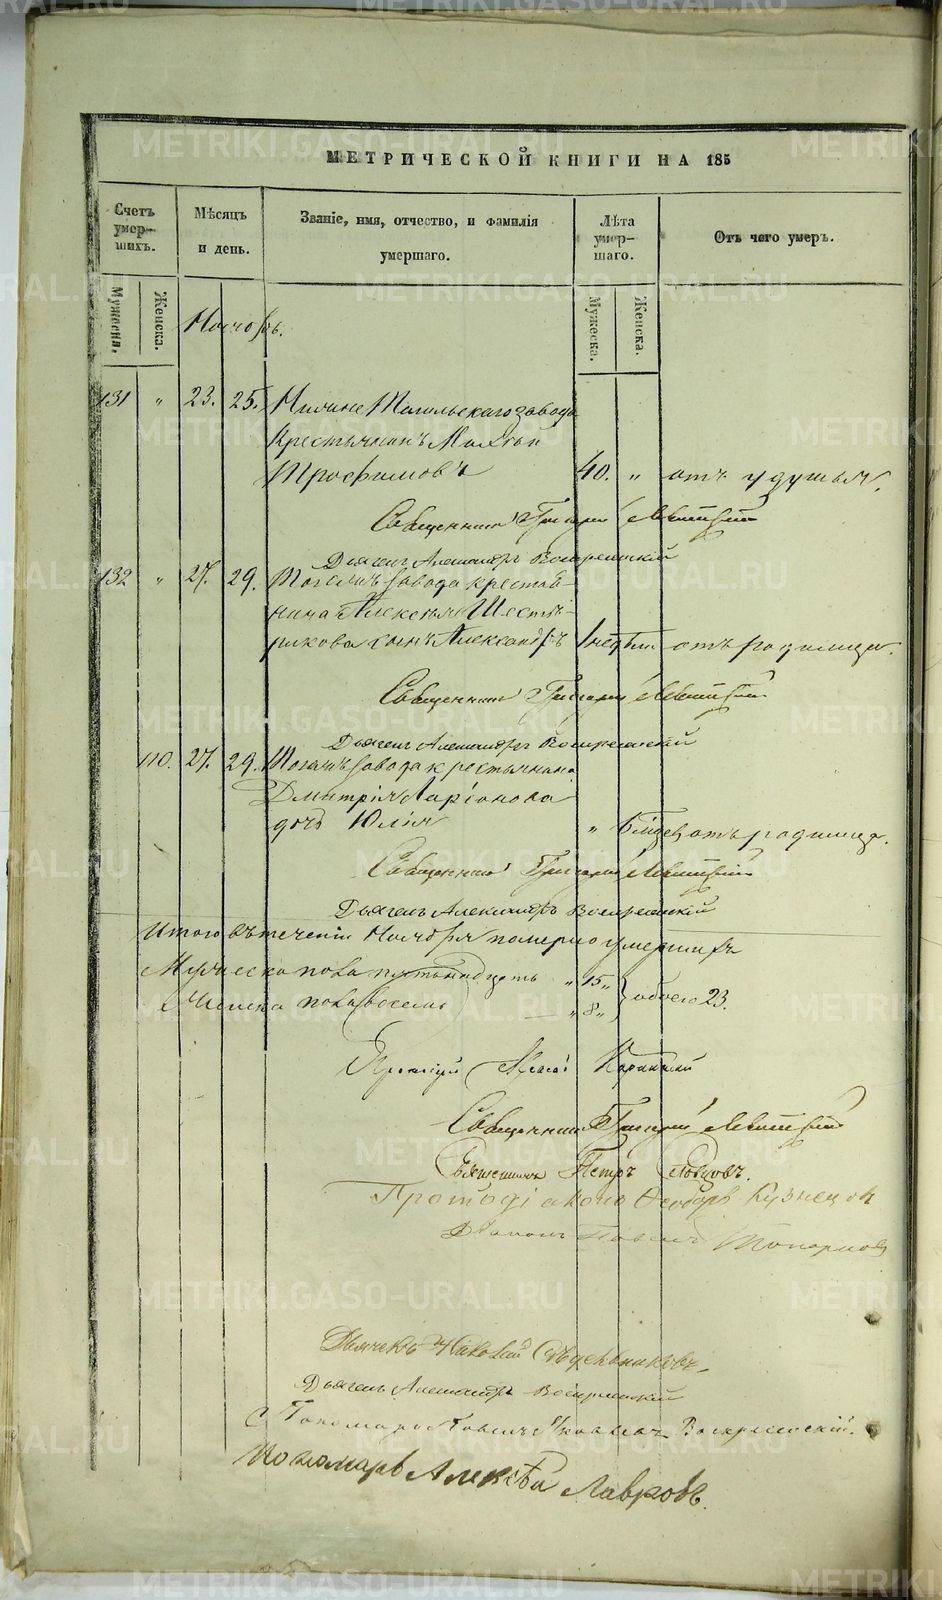 МЕТРИЧЕСКОЙ КНИГИ НА 185
Счетъ умер-шихъ.
Мѣсяцъ и день.
Званіе, имя, отчество, и фамилія умершаго.
Лѣта умер-шаго.
Отъ чего умеръ.
Мужеска.
Женска.
Мужеска.
Женска.
Ноябрь.
131 " 23. 25. Нижне Тагильскаго завода
Крестьянинъ Матвѣй
Трофимовъ 40. " отъ удушья.
Священникъ Григорій Левитскій
Дьячекъ Александръ Воскресенскій
132 " 27. 29. Тогожъ завода крестья-
нина Алексѣя Шесте-
рикова сынъ Александръ 1 недѣли отъ родимца.
Священникъ Григорій Левитскій
Дьячекъ Александръ Воскресенскій
110. 27. 29. Тогожъ завода крестьянина
Дмитрія Ларіонова
дочь Юлія " отъ родимца.
Священникъ Григорій Левитскій
Дьячекъ Александръ Воскресенскій
Итого въ теченіи Ноября померло умершихъ
Мужеска пола пятьнадцать " 15 "
Женска пола восемь " 8 " } обоего 23.
Священникъ Григорій Левитскій
Священникъ Петръ Словцовъ.
Протодіаконъ Ѳеодоръ Кузнецовъ
Діаконъ Павелъ Топорковъ
Дьячекъ Николай
Дьячекъ Александръ Воскресенскій
Пономарь Павелъ Воскресенскій.
Пономарь Алексѣй Лавровъ.
METRIKI.GASO-URAL.RU